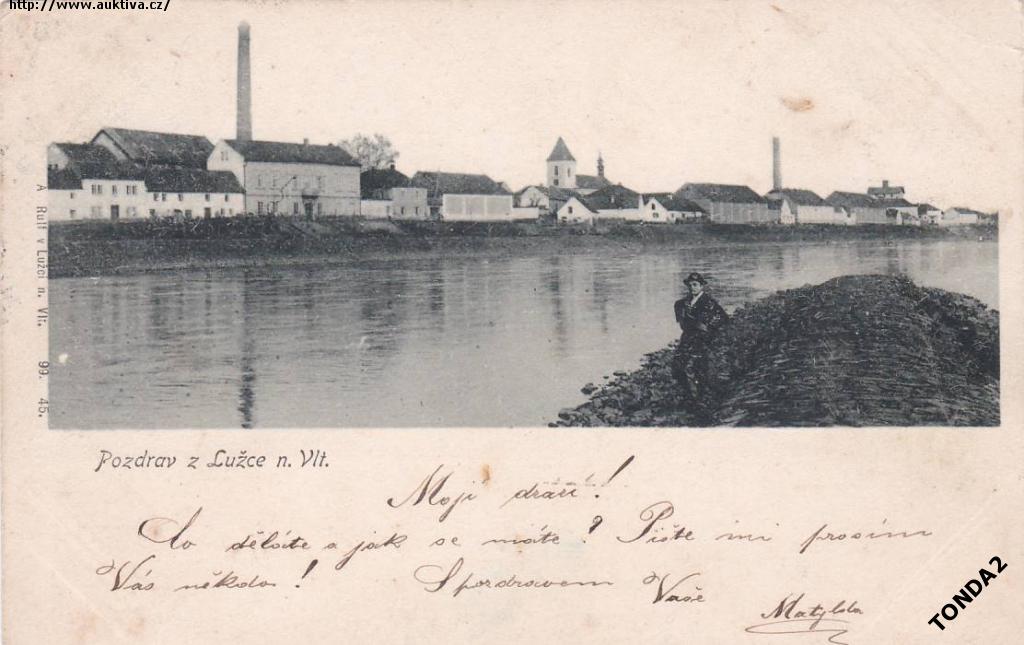 http://www.auktiva.cz/
A Rulf v Lužci n. Vlt. 99. 45.
Pozdrav z Lužce n. Vlt.
Moji drazí!
Co děláte a jak se máte? Pište mi prosím
Vás někdo! S pozdravem Vaše
Matylda
TONDA2